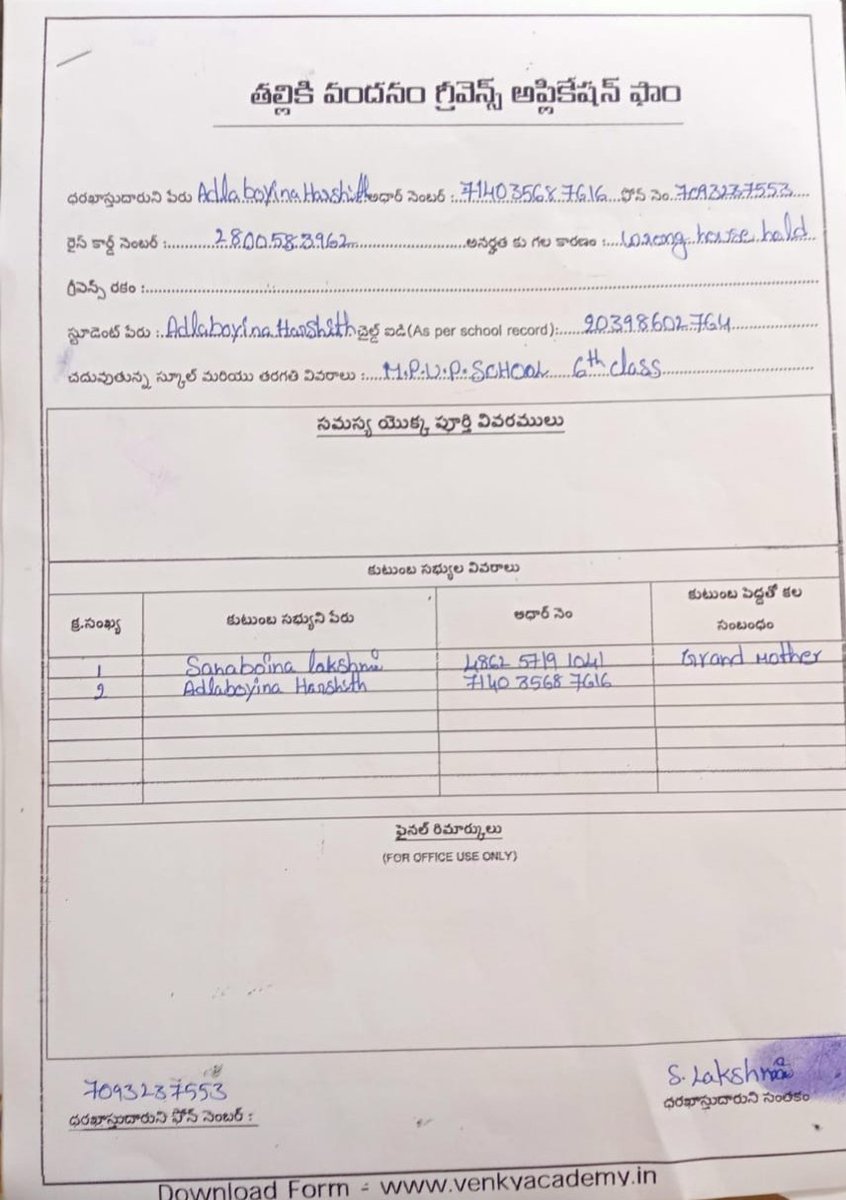 తల్లికి వందనం గ్రీవెన్స్ అప్లికేషన్ ఫాం
ధరఖాస్తుదారుని పేరు Adlaboyina Harshith ఆధార్ నెంబర్ :. 7140 3568 7616 ..ఫోన్ నెం. 7093237553 ....
రైస్ కార్డ్ నెంబర్ :.......... 2800583962 ..................అనర్హత కు గల కారణం :... Wrong house hald ..
గ్రీవెన్స్ రకం :..........................................................
స్టూడెంట్ పేరు :. Adlaboyina Harshith చైల్డ్ ఐడి(As per school record):..... 20398602764 ..................
చదువుతున్న స్కూల్ మరియు తరగతి వివరాలు :.... M.P.U.P. SCHOOL 6th class ................................
సమస్య యొక్క పూర్తి వివరములు
కుటుంబ సభ్యుల వివరాలు
క్ర.సంఖ్య కుటుంబ సభ్యుని పేరు ఆధార్ నెం కుటుంబ పెద్దతో కల సంబంధం
1 Sanaboina lakshmi 4862 5719 1041 Grand Mother
2 Adlaboyina Harshith 7140 3568 7616
ఫైనల్ రిమార్కులు
(FOR OFFICE USE ONLY)
7093237553 S. Lakshmi
ధరఖాస్తుదారుని ఫోన్ నెంబర్ : ధరఖాస్తుదారుని సంతకం
Download Form - www.venkyacademy.in